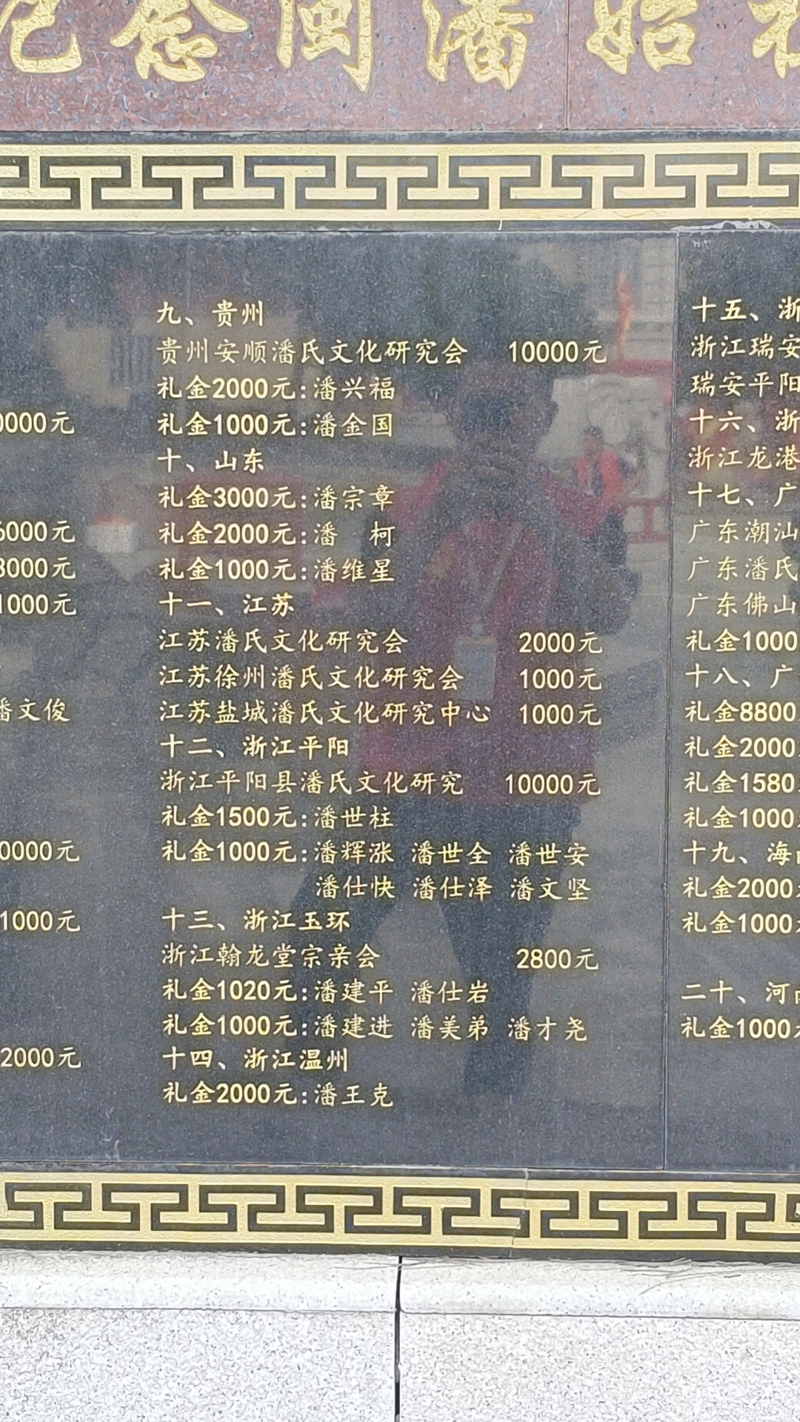 念闽潘始
0000元
6000元
3000元
1000元
潘文俊
0000元
1000元
2000元
九、贵州
贵州安顺潘氏文化研究会 10000元
礼金2000元:潘兴福
礼金1000元:潘金国
十、山东
礼金3000元:潘宗章
礼金2000元:潘 柯
礼金1000元:潘维星
十一、江苏
江苏潘氏文化研究会 2000元
江苏徐州潘氏文化研究会 1000元
江苏盐城潘氏文化研究中心 1000元
十二、浙江平阳
浙江平阳县潘氏文化研究 10000元
礼金1500元:潘世柱
礼金1000元:潘辉涨 潘世全 潘世安
潘仕快 潘仕泽 潘文坚
十三、浙江玉环
浙江翰龙堂宗亲会 2800元
礼金1020元:潘建平 潘仕岩
礼金1000元:潘建进 潘美弟 潘才尧
十四、浙江温州
礼金2000元:潘王克
十五、浙
浙江瑞安
瑞安平阳
十六、浙
浙江龙港
十七、广
广东潮汕
广东潘氏
广东佛山
礼金1000
十八、广
礼金8800
礼金2000
礼金1580
礼金1000
十九、海
礼金2000
礼金1000
二十、河
礼金1000